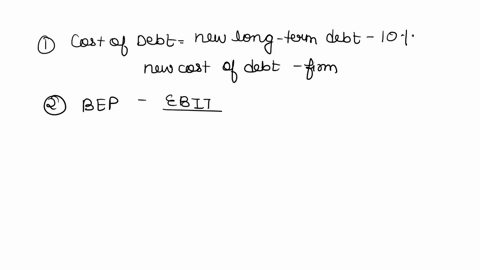 ① Cost of Debt = new long-term debt - 10%.
new cost of debt - firm
② BEP - EBIT